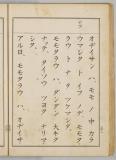 オヂイサン ハ、モモ ノ 中 カラ
ウマレタ ト イフ ノデ、モモタ
ラウ ト ナ ヲ ツケマシタ。
モモタラウ ハ、ダンダン 大キク
ナッテ、タイソウ ツヨク ナリマ
シタ。
アルヒ、モモタラウ ハ、オヂイサ